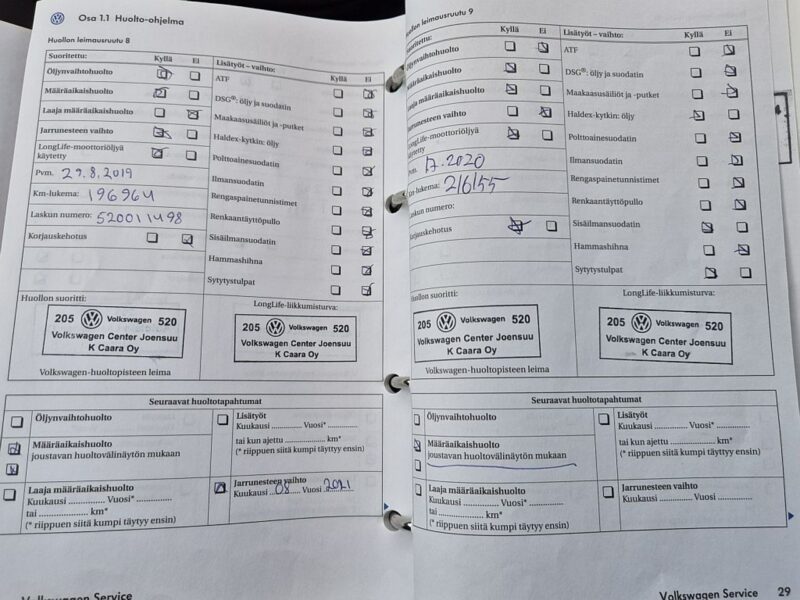 Osa 1.1 Huolto-ohjelma
Huollon leimausruutu 8
Suoritettu: Kyllä Ei
Öljynvaihtohuolto
Määräaikaishuolto
Laaja määräaikaishuolto
Jarrunesteen vaihto
LongLife-moottoriöljyä
käytetty
Pvm. 29.8.2019
Km-lukema: 196964
Laskun numero: 520011498
Korjauskehotus
Lisätyöt – vaihto: Kyllä Ei
ATF
DSG®: öljy ja suodatin
Maakaasusäiliöt ja -putket
Haldex-kytkin: öljy
Polttoainesuodatin
Ilmansuodatin
Rengaspainetunnistimet
Renkaantäyttöpullo
Sisäilmansuodatin
Hammashihna
Sytytystulpat
Huollon suoritti:
205 Volkswagen 520
Volkswagen Center Joensuu
K Caara Oy
LongLife-liikkumisturva:
205 Volkswagen 520
Volkswagen Center Joensuu
K Caara Oy
Volkswagen-huoltopisteen leima
Seuraavat huoltotapahtumat
Öljynvaihtohuolto
Määräaikaishuolto
joustavan huoltovälinäytön mukaan
Laaja määräaikaishuolto
Kuukausi .............. Vuosi* ..............
tai ........................ km*
(* riippuen siitä kumpi täytyy ensin)
Lisätyöt
Kuukausi .............. Vuosi* ..............
tai kun ajettu .................. km*
(* riippuen siitä kumpi täytyy ensin)
Jarrunesteen vaihto
Kuukausi 08 Vuosi 2021
Volkswagen Service
Huollon leimausruutu 9
Suoritettu: Kyllä Ei
Öljynvaihtohuolto
Määräaikaishuolto
Laaja määräaikaishuolto
Jarrunesteen vaihto
LongLife-moottoriöljyä
käytetty
Pvm.
Km-lukema: 216155
Laskun numero:
Korjauskehotus
Lisätyöt – vaihto: Kyllä Ei
ATF
DSG®: öljy ja suodatin
Maakaasusäiliöt ja -putket
Haldex-kytkin: öljy
Polttoainesuodatin
Ilmansuodatin
Rengaspainetunnistimet
Renkaantäyttöpullo
Sisäilmansuodatin
Hammashihna
Sytytystulpat
Huollon suoritti:
205 Volkswagen 520
Volkswagen Center Joensuu
K Caara Oy
LongLife-liikkumisturva:
205 Volkswagen 520
Volkswagen Center Joensuu
K Caara Oy
Volkswagen-huoltopisteen leima
Seuraavat huoltotapahtumat
Öljynvaihtohuolto
Määräaikaishuolto
joustavan huoltovälinäytön mukaan
Laaja määräaikaishuolto
Kuukausi .............. Vuosi* ..............
tai ........................ km*
(* riippuen siitä kumpi täytyy ensin)
Lisätyöt
Kuukausi .............. Vuosi* ..............
tai kun ajettu .................. km*
(* riippuen siitä kumpi täytyy ensin)
Jarrunesteen vaihto
Kuukausi .............. Vuosi ..............
Volkswagen Service 29